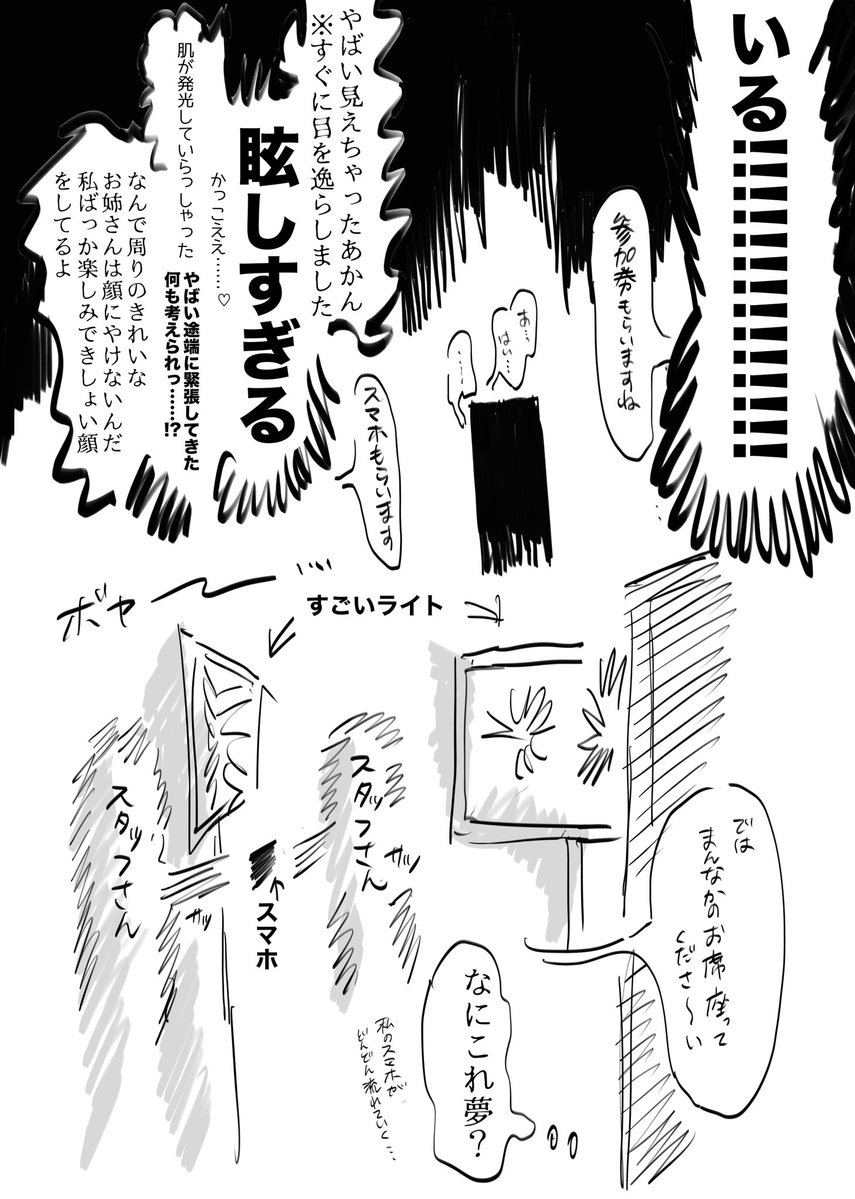 いる!!!!!!!!!!!!!!!
参加券もらいますね
あ…
はい…
……
スマホもらいます
やばい見えちゃったあかん
※すぐに目を逸らしました
眩しすぎる
かっこええ……♡
肌が発光していらっしゃった
やばい途端に緊張してきた
何も考えられっ……!?
なんで周りのきれいな
お姉さんは顔にやけないんだ
私ばっか楽しみできしょい顔
をしてるよ
すごいライト
ボヤ
では
まんなかのお席座って
くださ〜い
スタッフさん
ガッ
スタッフさん
ガッ
←スマホ
なにこれ夢？
私のスマホが
どんどん流れていく…